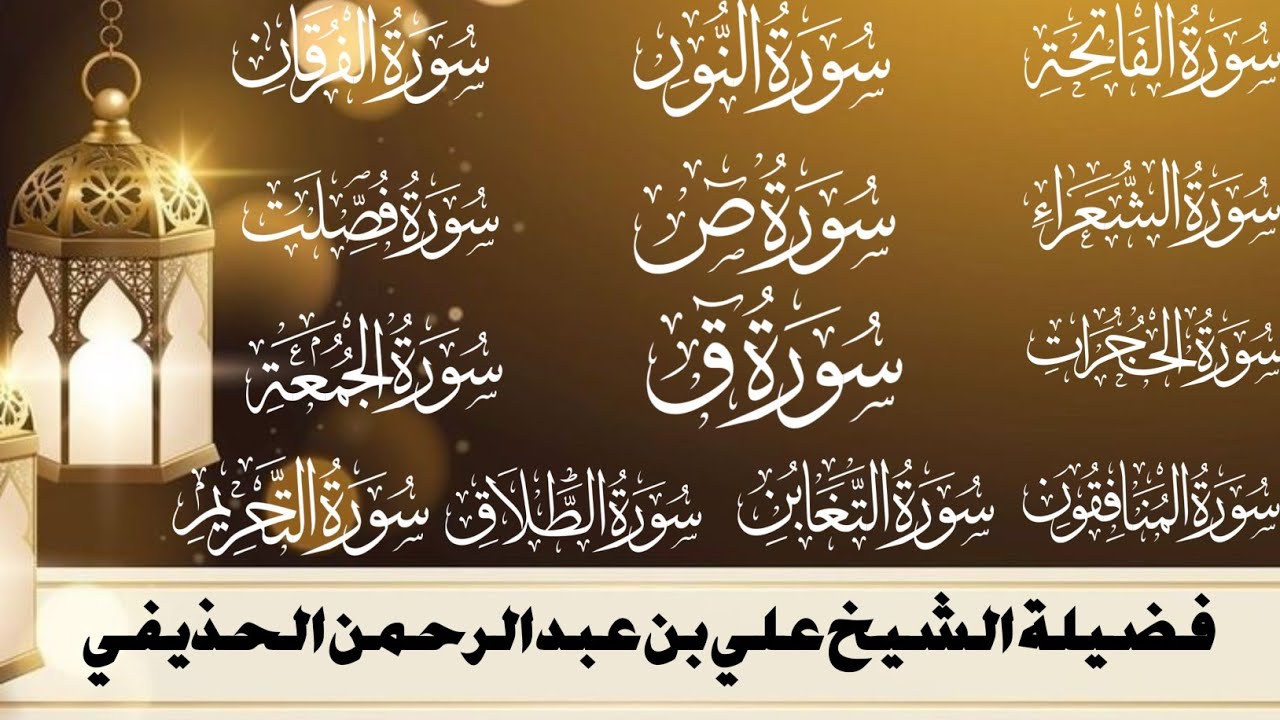 سُورَةُ الفَاتِحَةِ سُورَةُ النُّورِ سُورَةُ الفُرْقَانِ
سُورَةُ الشُّعَرَاءِ سُورَةُ صٓ سُورَةُ فُصِّلَتْ
سُورَةُ الحُجُرَاتِ سُورَةُ قٓ سُورَةُ الجُمُعَةِ
سُورَةُ المُنَافِقُونَ سُورَةُ التَّغَابُنِ سُورَةُ الطَّلَاقِ سُورَةُ التَّحْرِيمِ
فضيلة الشيخ علي بن عبد الرحمن الحذيفي